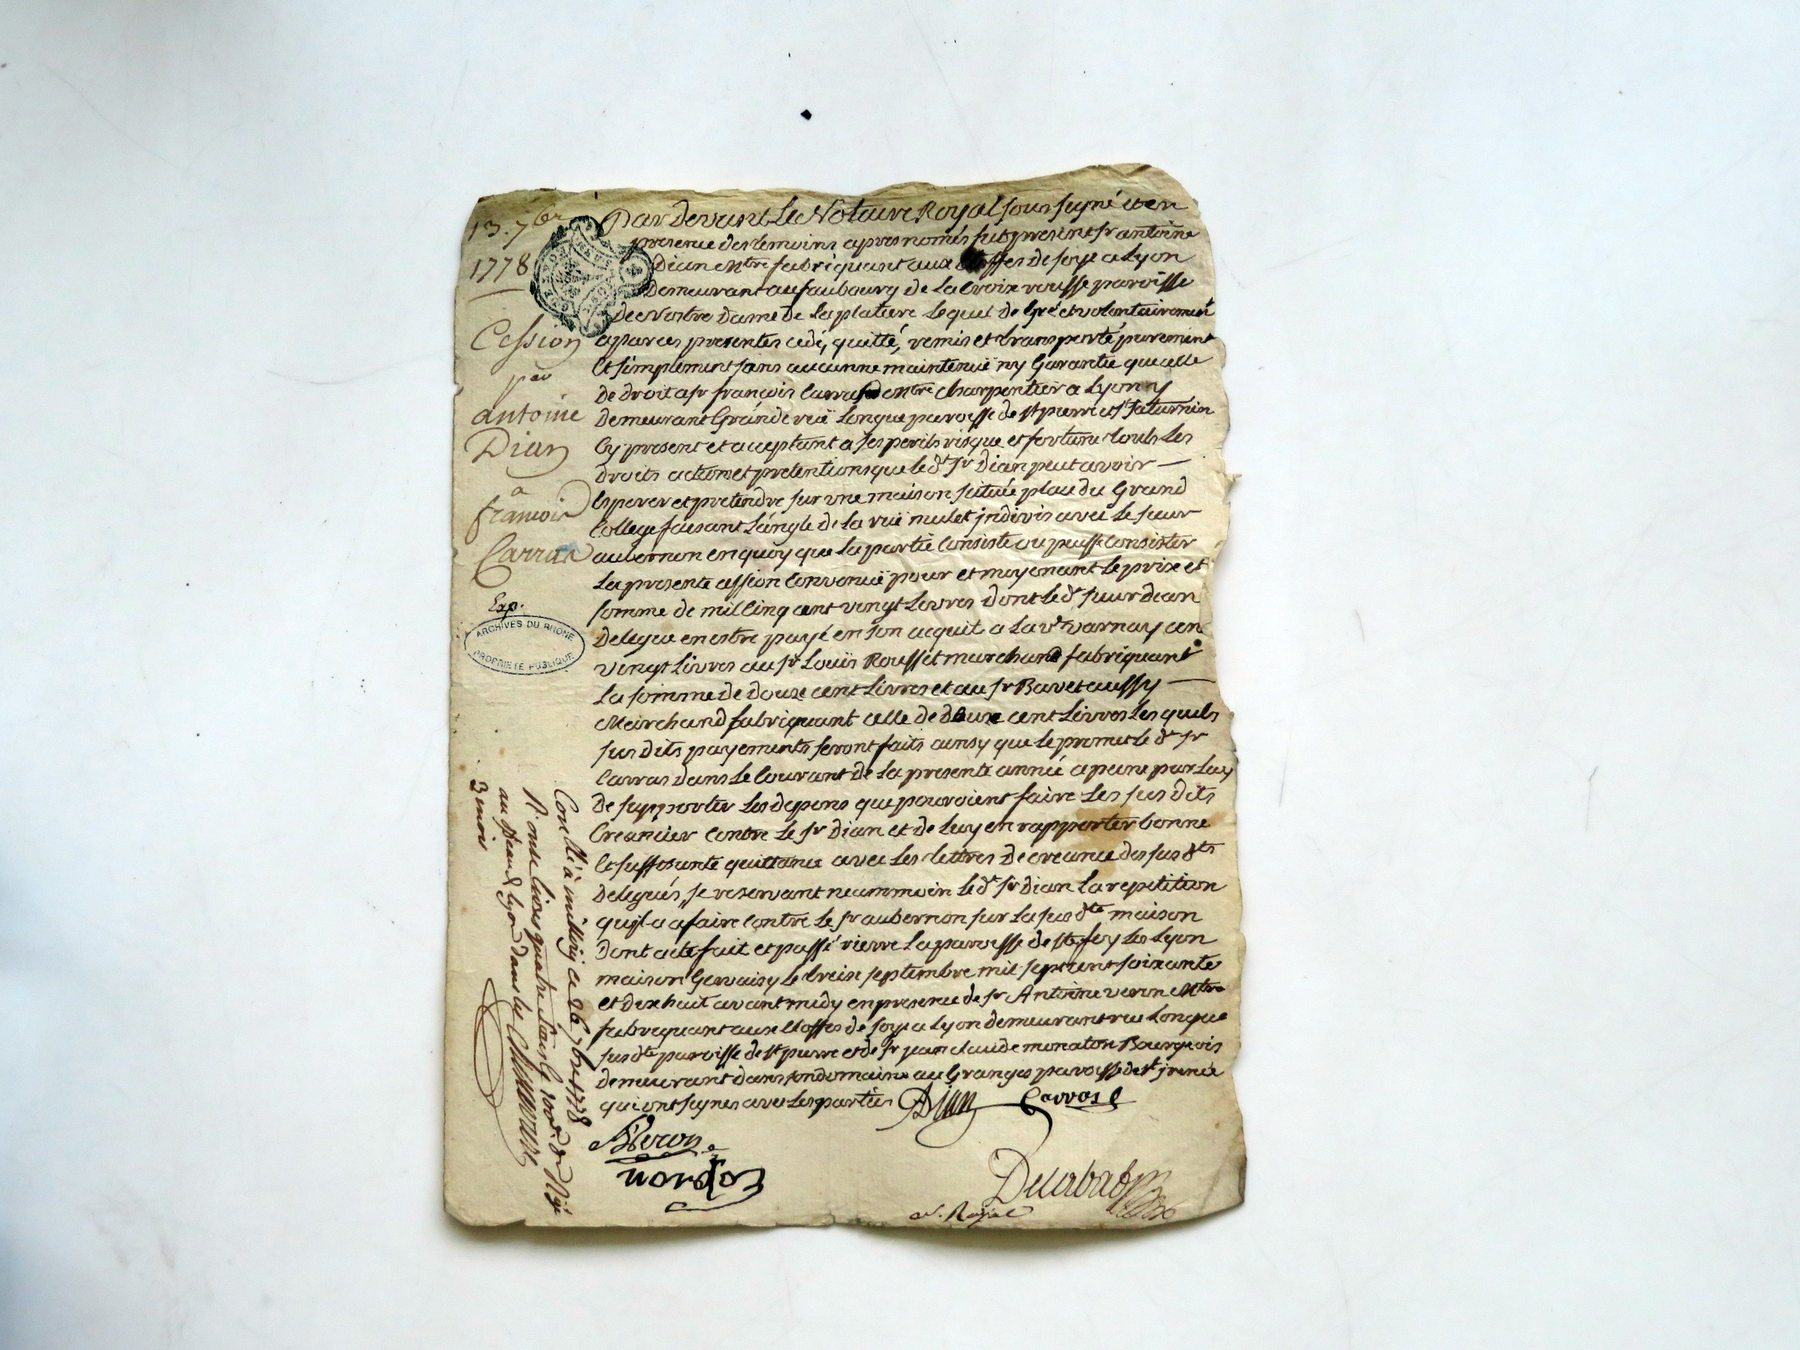 13. 7bre
1778
Cession
par
antoine
Dian
a
francois
Carras
Exp.
ARCHIVES DU RHÔNE
PROPRIÉTÉ PUBLIQUE
Par Devant Le Notaire Royal sous signé et en
presence des temoins apres només fut present sr antoine
Dian mtre fabriquant aux Etoffes de soye a Lyon
Demeurant au faubourg de la Croix rousse paroisse
de Nostre Dame de la platiere Lequel de Gré et volontairement
a par ces presentes cedé, quitté, remis et transporté purement
et simplement sans aucunne maintenuë ny Garantie que celle
De droit a sr françois Carras mtre charpentier a Lyon y
Demeurant Grande ruë Longue paroisse de st pierre et st saturnin
Cy present et acceptant a ses perils risque et fortune touts les
droits actions et pretentions que le dt sr Dian peut avoir
Esperer et pretendre sur une maison située place du Grand
College faisant l'angle de la ruë mulet jndivis avec le sieur
aubernon en quoy que la partie Consiste ou puisse consister
La presente cession Convenuë pour et moyenant le prix et
somme de mil Cinq cent vingt Livres Dont le dt sieur dian
Delegue en estre payé en son acquit a la ve varnay cen
vingt Livres au sr Louïs Rousset marchand fabriquant
La somme de douze cent Livres et au sr Bavet aussy
Marchand fabriquant celle de deux cent Livres Les quels
sus dits payements seront faits ainsy que le promet le dt sr
Carras dans le Courant de la presente année a peine par Luy
De supporter Les depens que pouroient faire Les sus dits
Creancier Contre Le sr Dian et de Luy en rapporter bonne
et suffisante quittance avec Les Lettres de creance des sus dts
Delegués, se reservant neammoin le dt sr dian La repetition
qu'jl a a faire Contre Le sr aubernon sur La sus dte maison
Dont acte fait et passé riere La paroisse de ste foy Les Lyon
maison Gervaisy le treize septembre mil sept cent soixante
et dix huit avant midy en presence de sr Antoine veron mtre
fabriquant aux Etoffes de soye a Lyon demeurant rue Longue
sus dte paroisse de st pierre et de sr jean claude monaton Bourgeois
demeurant dans son domaine au Granges paroisse de st jrenée
qui ont signés avec Les parties Dian Carras
A Veron
Decabat
n. Royal
Con.llé a millery ce 26 7bre 1778
R. onze livres quatre sols
au de Lyon dans les
3 mois